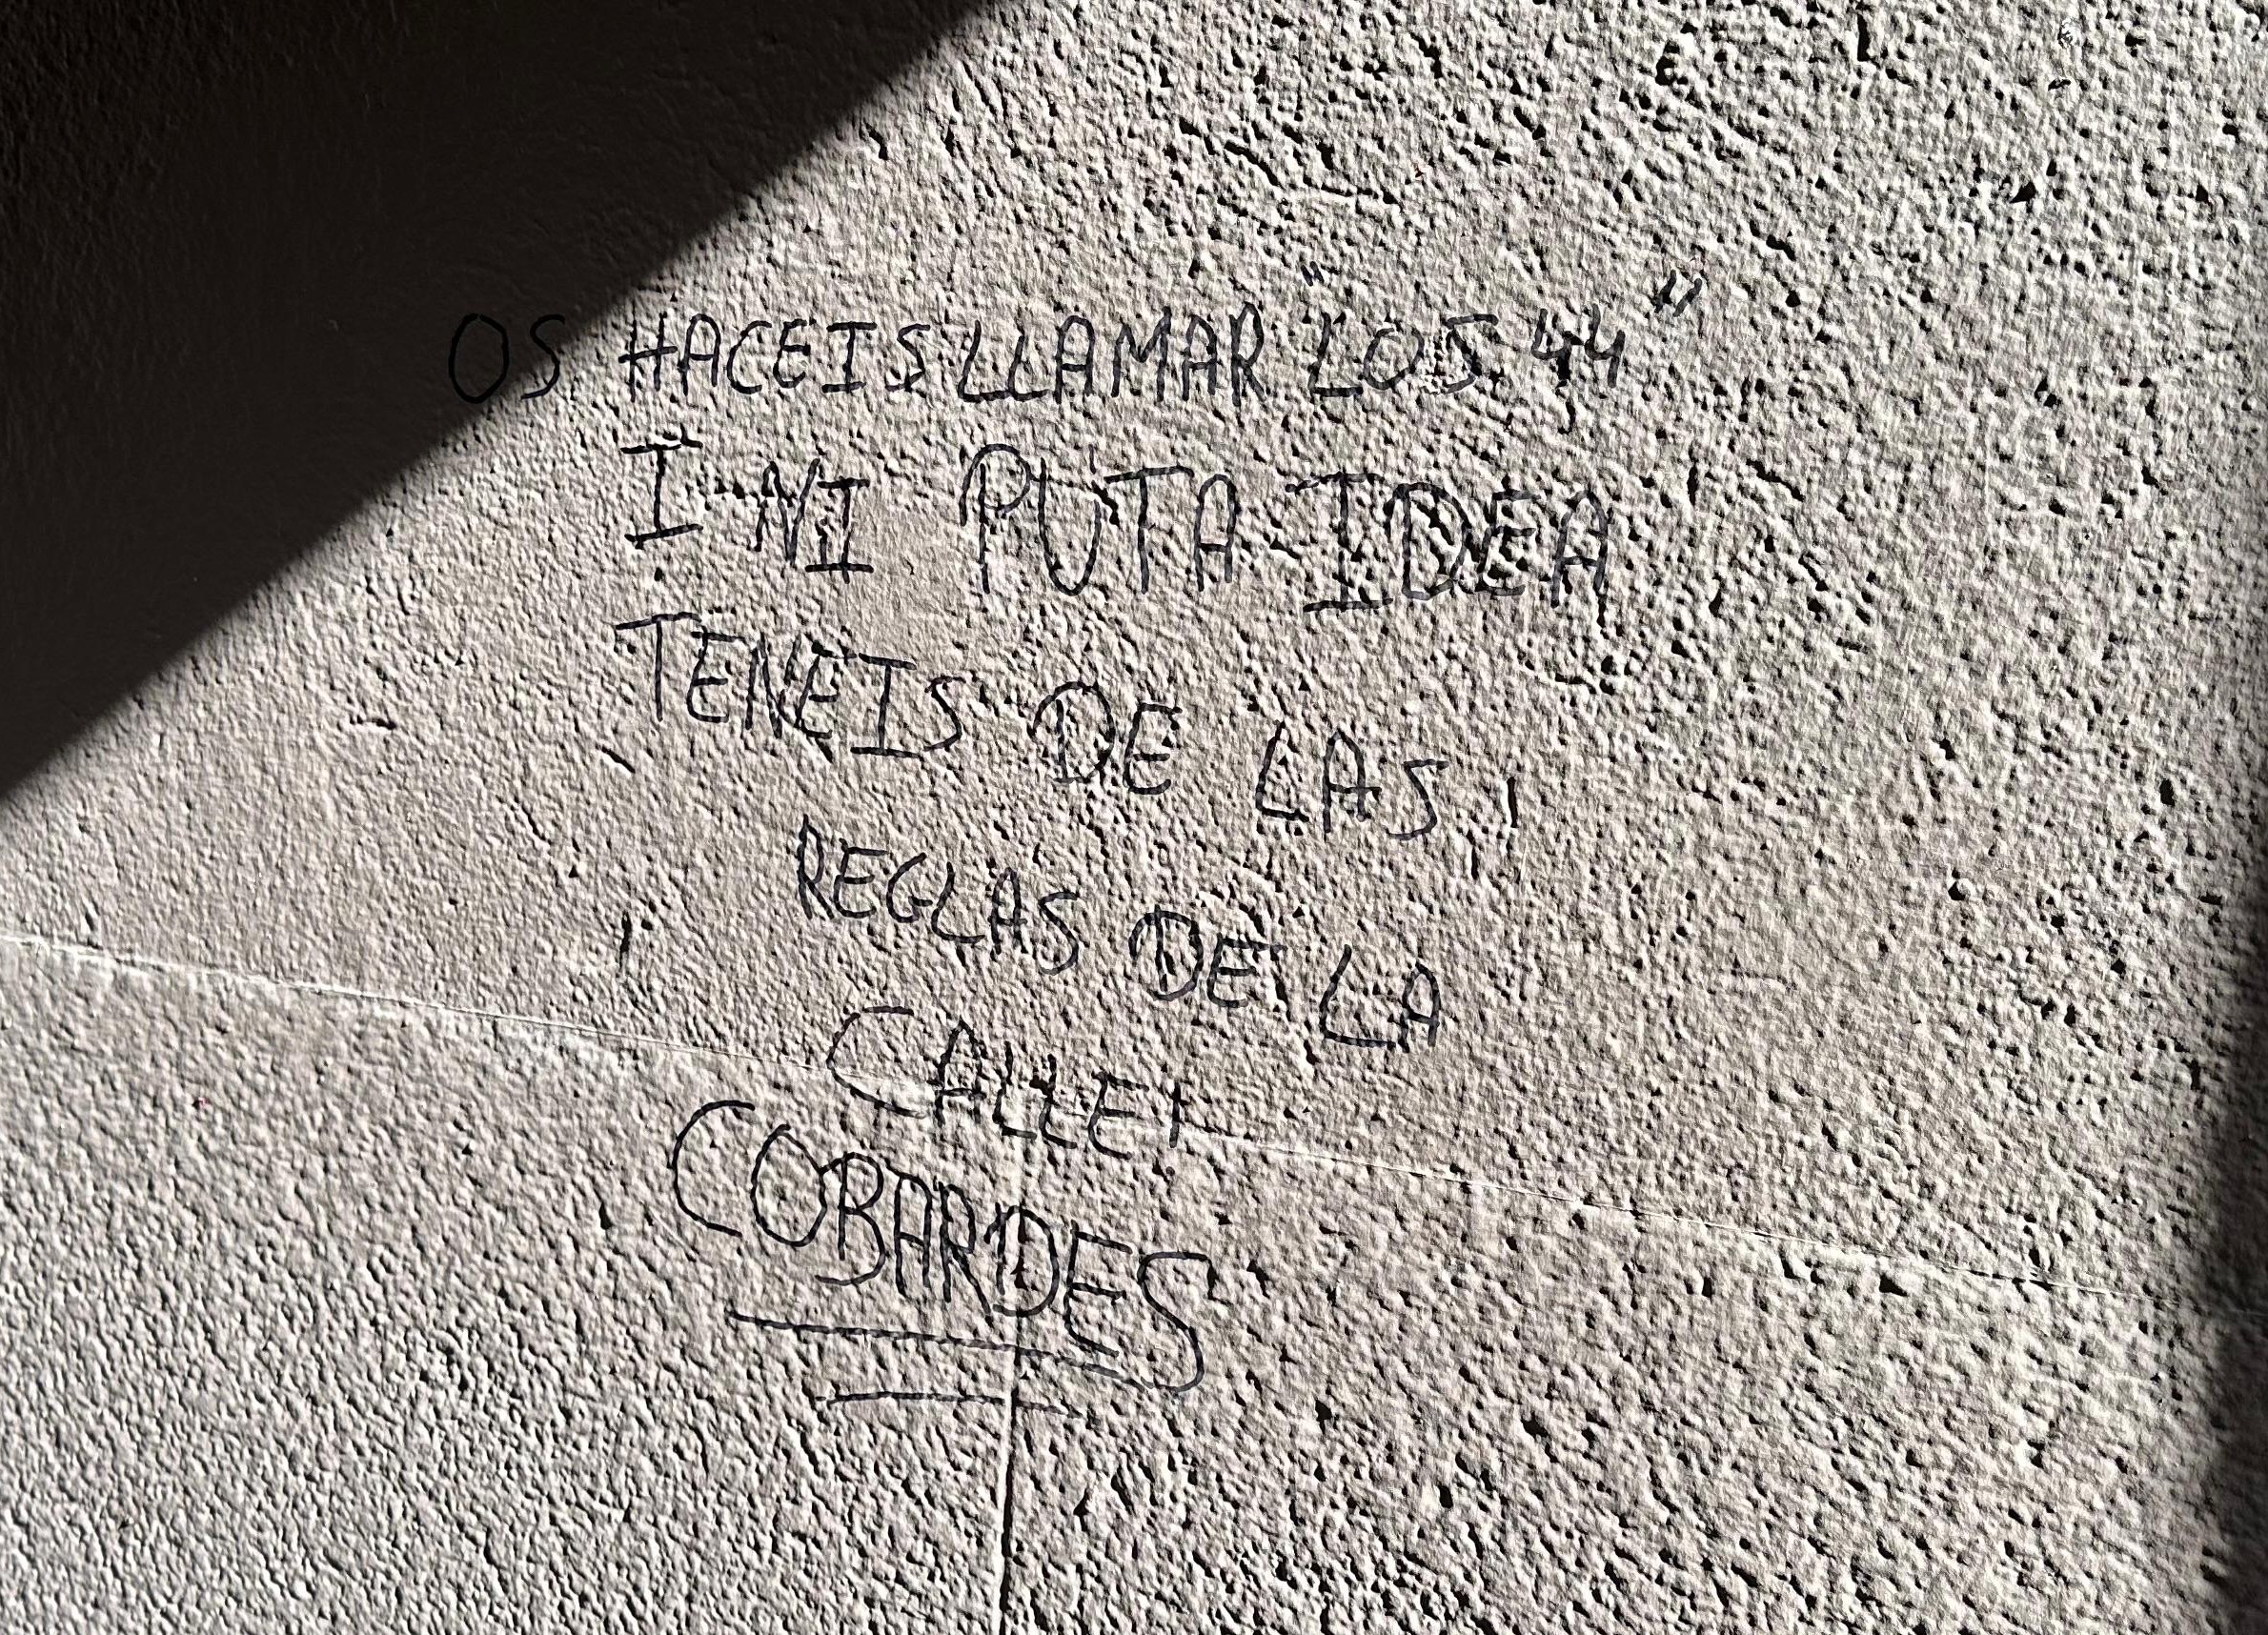 OS HACEIS LLAMAR "LOS 44"
I NI PUTA IDEA
TENEIS DE LAS
REGLAS DE LA
CALLE!
COBARDES